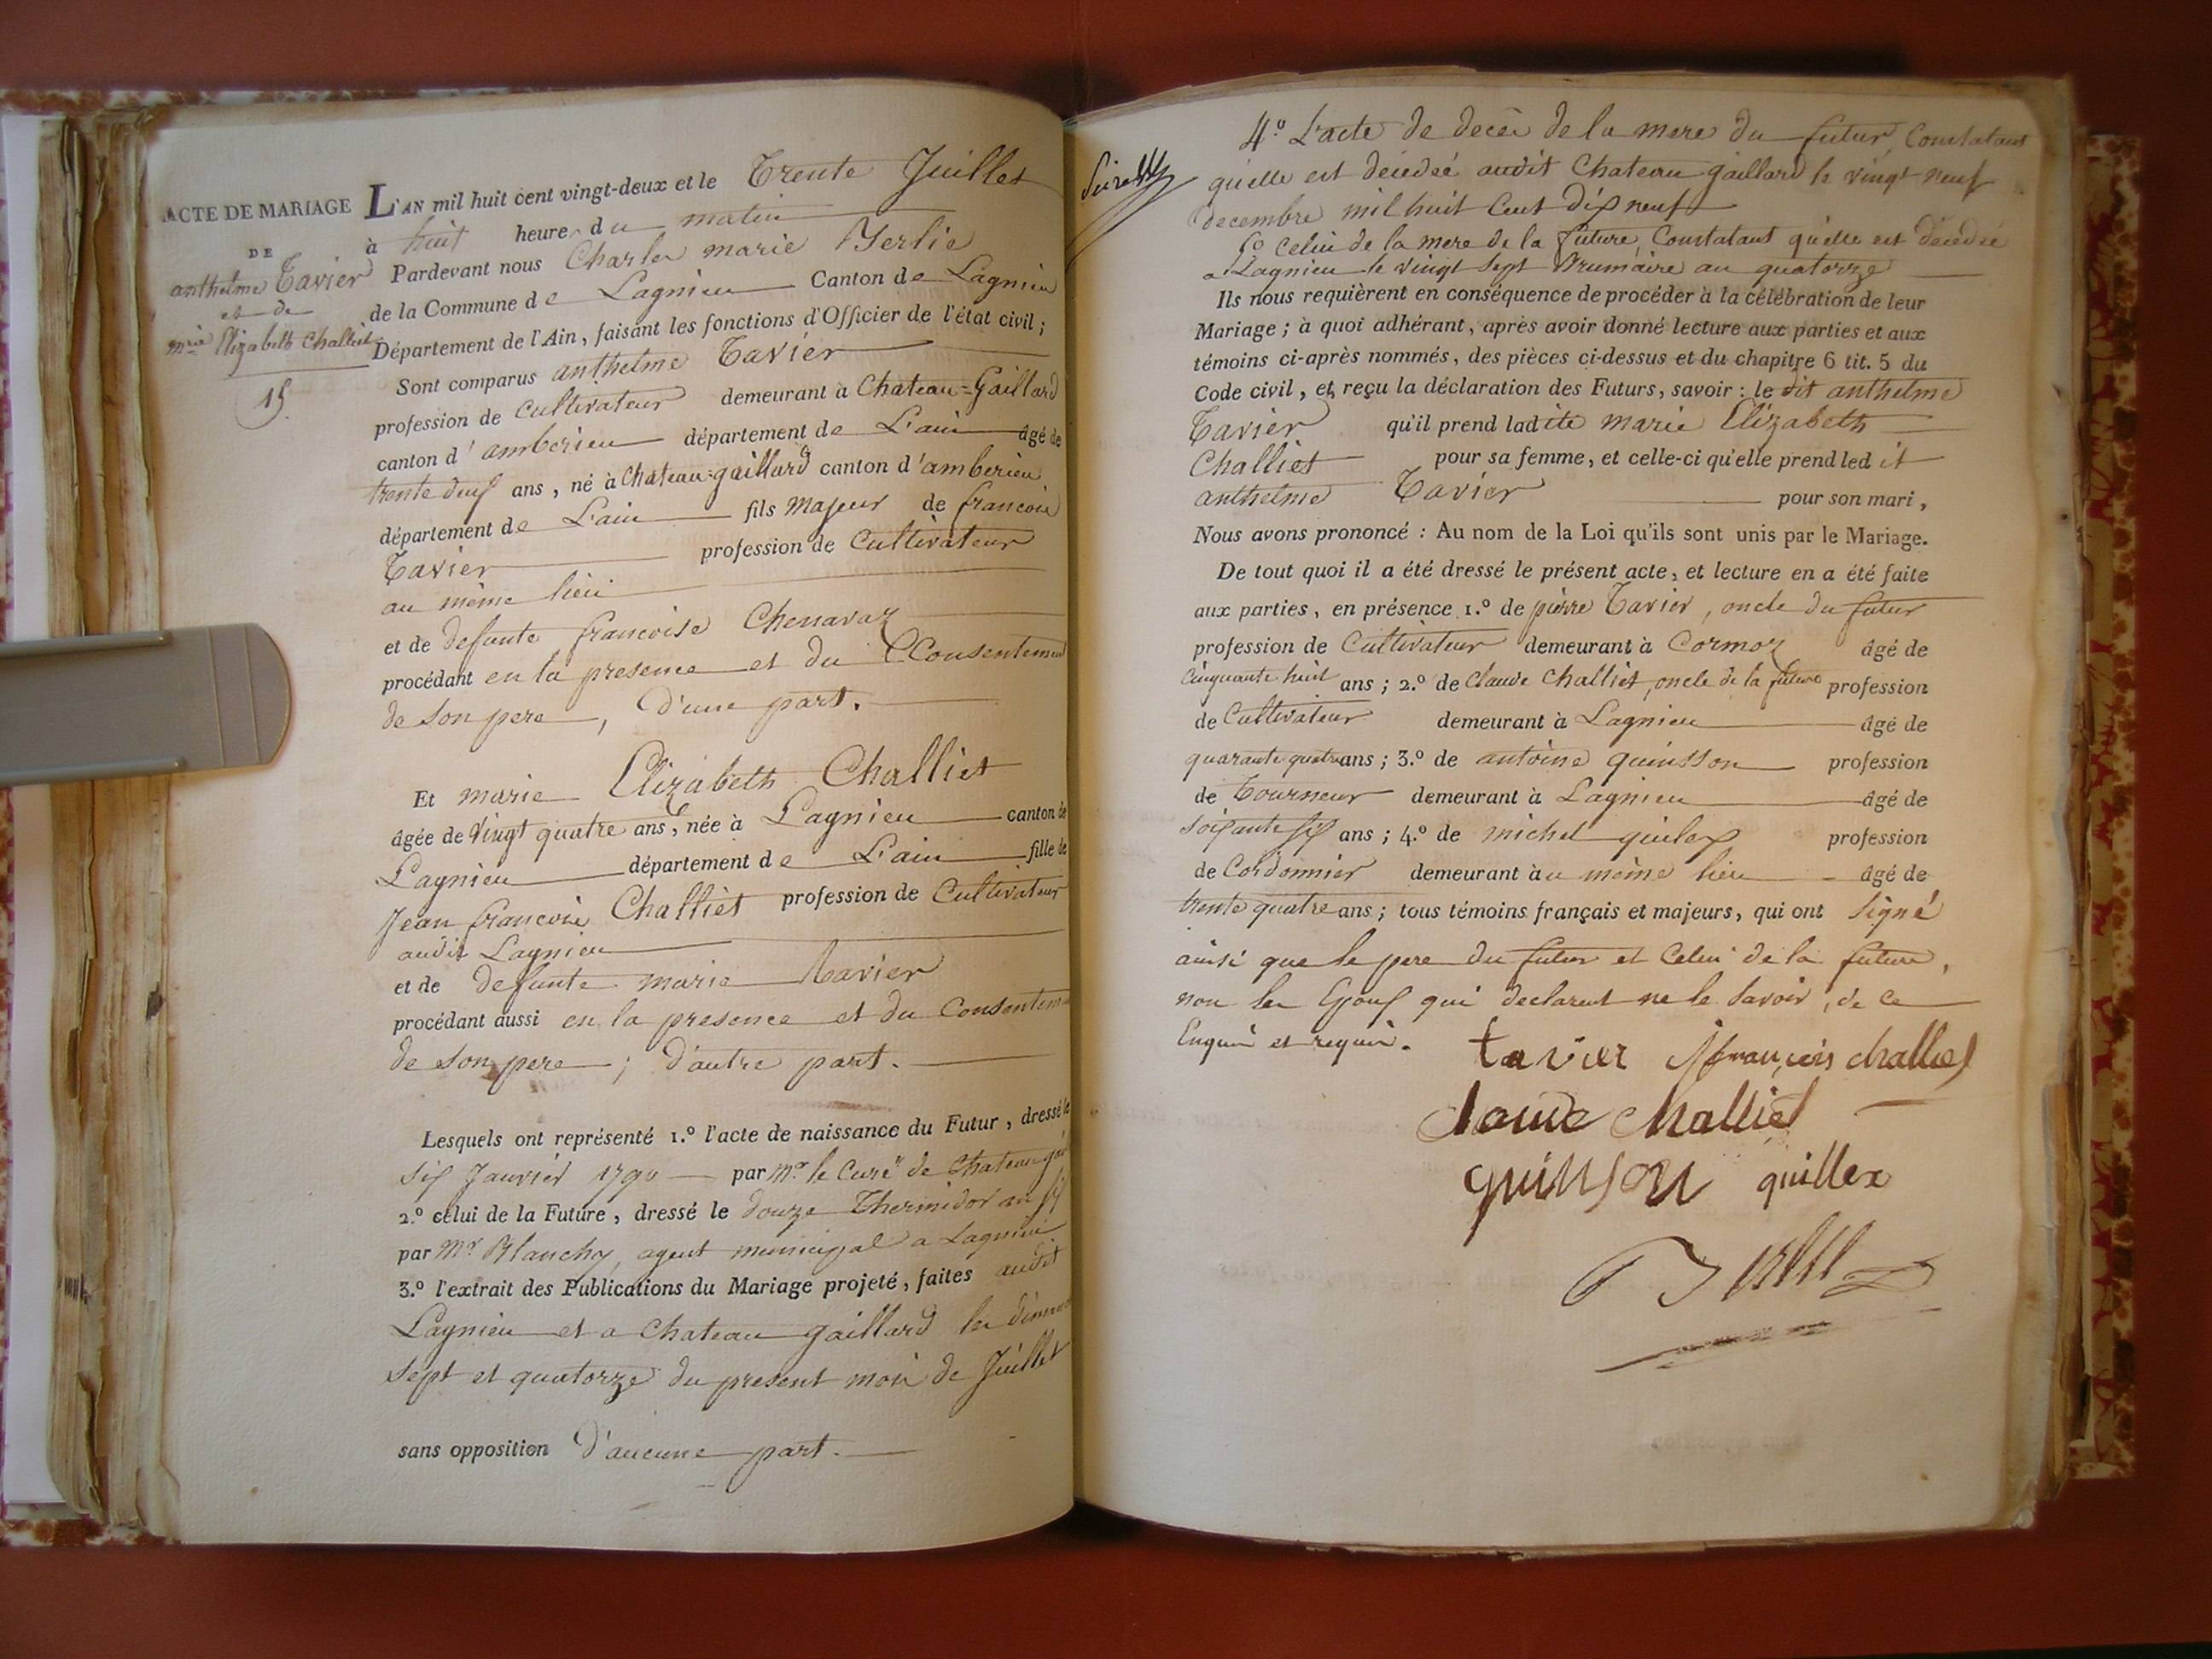 ACTE DE MARIAGE
DE
anthelme Tavier
et de
mie Elizabeth Challiet
15.
L'AN mil huit cent vingt-deux et le Trente Juillet
à huit heures du matin
Pardevant nous Charles marie Yerlie
de la Commune de Lagnieu Canton de Lagnieu
Département de l'Ain, faisant les fonctions d'Officier de l'état civil;
Sont comparus anthelme Tavier
profession de Cultivateur demeurant à Chateau=Gaillard
canton d'amberieu département de L'ain âgé de
trente deux ans, né à Chateau-gaillard canton d'amberieu
département de L'ain fils Majeur de francois
Tavier profession de Cultivateur
au même lieu
et de defunte francoise Chenavaz
procédant en la presence et du Consentement
de son pere, d'une part.
Et marie Elizabeth Challiet
âgée de vingt quatre ans, née à Lagnieu canton de
Lagnieu département de L'ain fille de
Jean francois Challiet profession de Cultivateur
audit Lagnieu
et de defunte marie Tavier
procédant aussi en la presence et du Consentem
de son pere; d'autre part.
Lesquels ont représenté 1.º l'acte de naissance du Futur, dressé le
six Janvier 1790 par Mr. le Curé de Chateau gai
2.º celui de la Future, dressé le douze Thermidor an six
par Mr Blanchy, agent municipal a Lagnieu
3.º l'extrait des Publications du Mariage projeté, faites audit
Lagnieu et a Chateau gaillard les dimanc
sept et quatorze du present mois de Juillet
sans opposition d'aucune part.
4.º L'acte de decès de la mere du futur, Constatant
qu'elle est décédeé audit Chateau gaillard le vingt neuf
decembre mil huit Cent dix neuf
5º Celui de la mere de la future, Constatant qu'elle est décédeé
a Lagnieu le vingt sept Brumaire an quatorze
Ils nous requièrent en conséquence de procéder à la célébration de leur
Mariage; à quoi adhérant, après avoir donné lecture aux parties et aux
témoins ci-après nommés, des pièces ci-dessus et du chapitre 6 tit. 5 du
Code civil, et reçu la déclaration des Futurs, savoir: le dit anthelme
Tavier qu'il prend ladite marie Elizabeth
Challiet pour sa femme, et celle-ci qu'elle prend ledit
anthelme Tavier pour son mari,
Nous avons prononcé: Au nom de la Loi qu'ils sont unis par le Mariage.
De tout quoi il a été dressé le présent acte, et lecture en a été faite
aux parties, en présence 1.º de pierre Tavier, oncle du futur
profession de Cultivateur demeurant à Cormoz âgé de
Cinquante huit ans; 2.º de Claude Challiet, oncle de la future profession
de Cultivateur demeurant à Lagnieu âgé de
quarante quatre ans; 3.º de antoine quinsson profession
de Tourneur demeurant à Lagnieu âgé de
soixante six ans; 4.º de michel quilex profession
de Cordonnier demeurant au même lieu âgé de
trente quatre ans; tous témoins français et majeurs, qui ont Signé
ainsi que le pere du futur et Celui de la future,
non les Epoux qui declarent ne le savoir, de ce
Enquis et requis.
tavier jfrançois challiet
claude challiet
quinson quillex